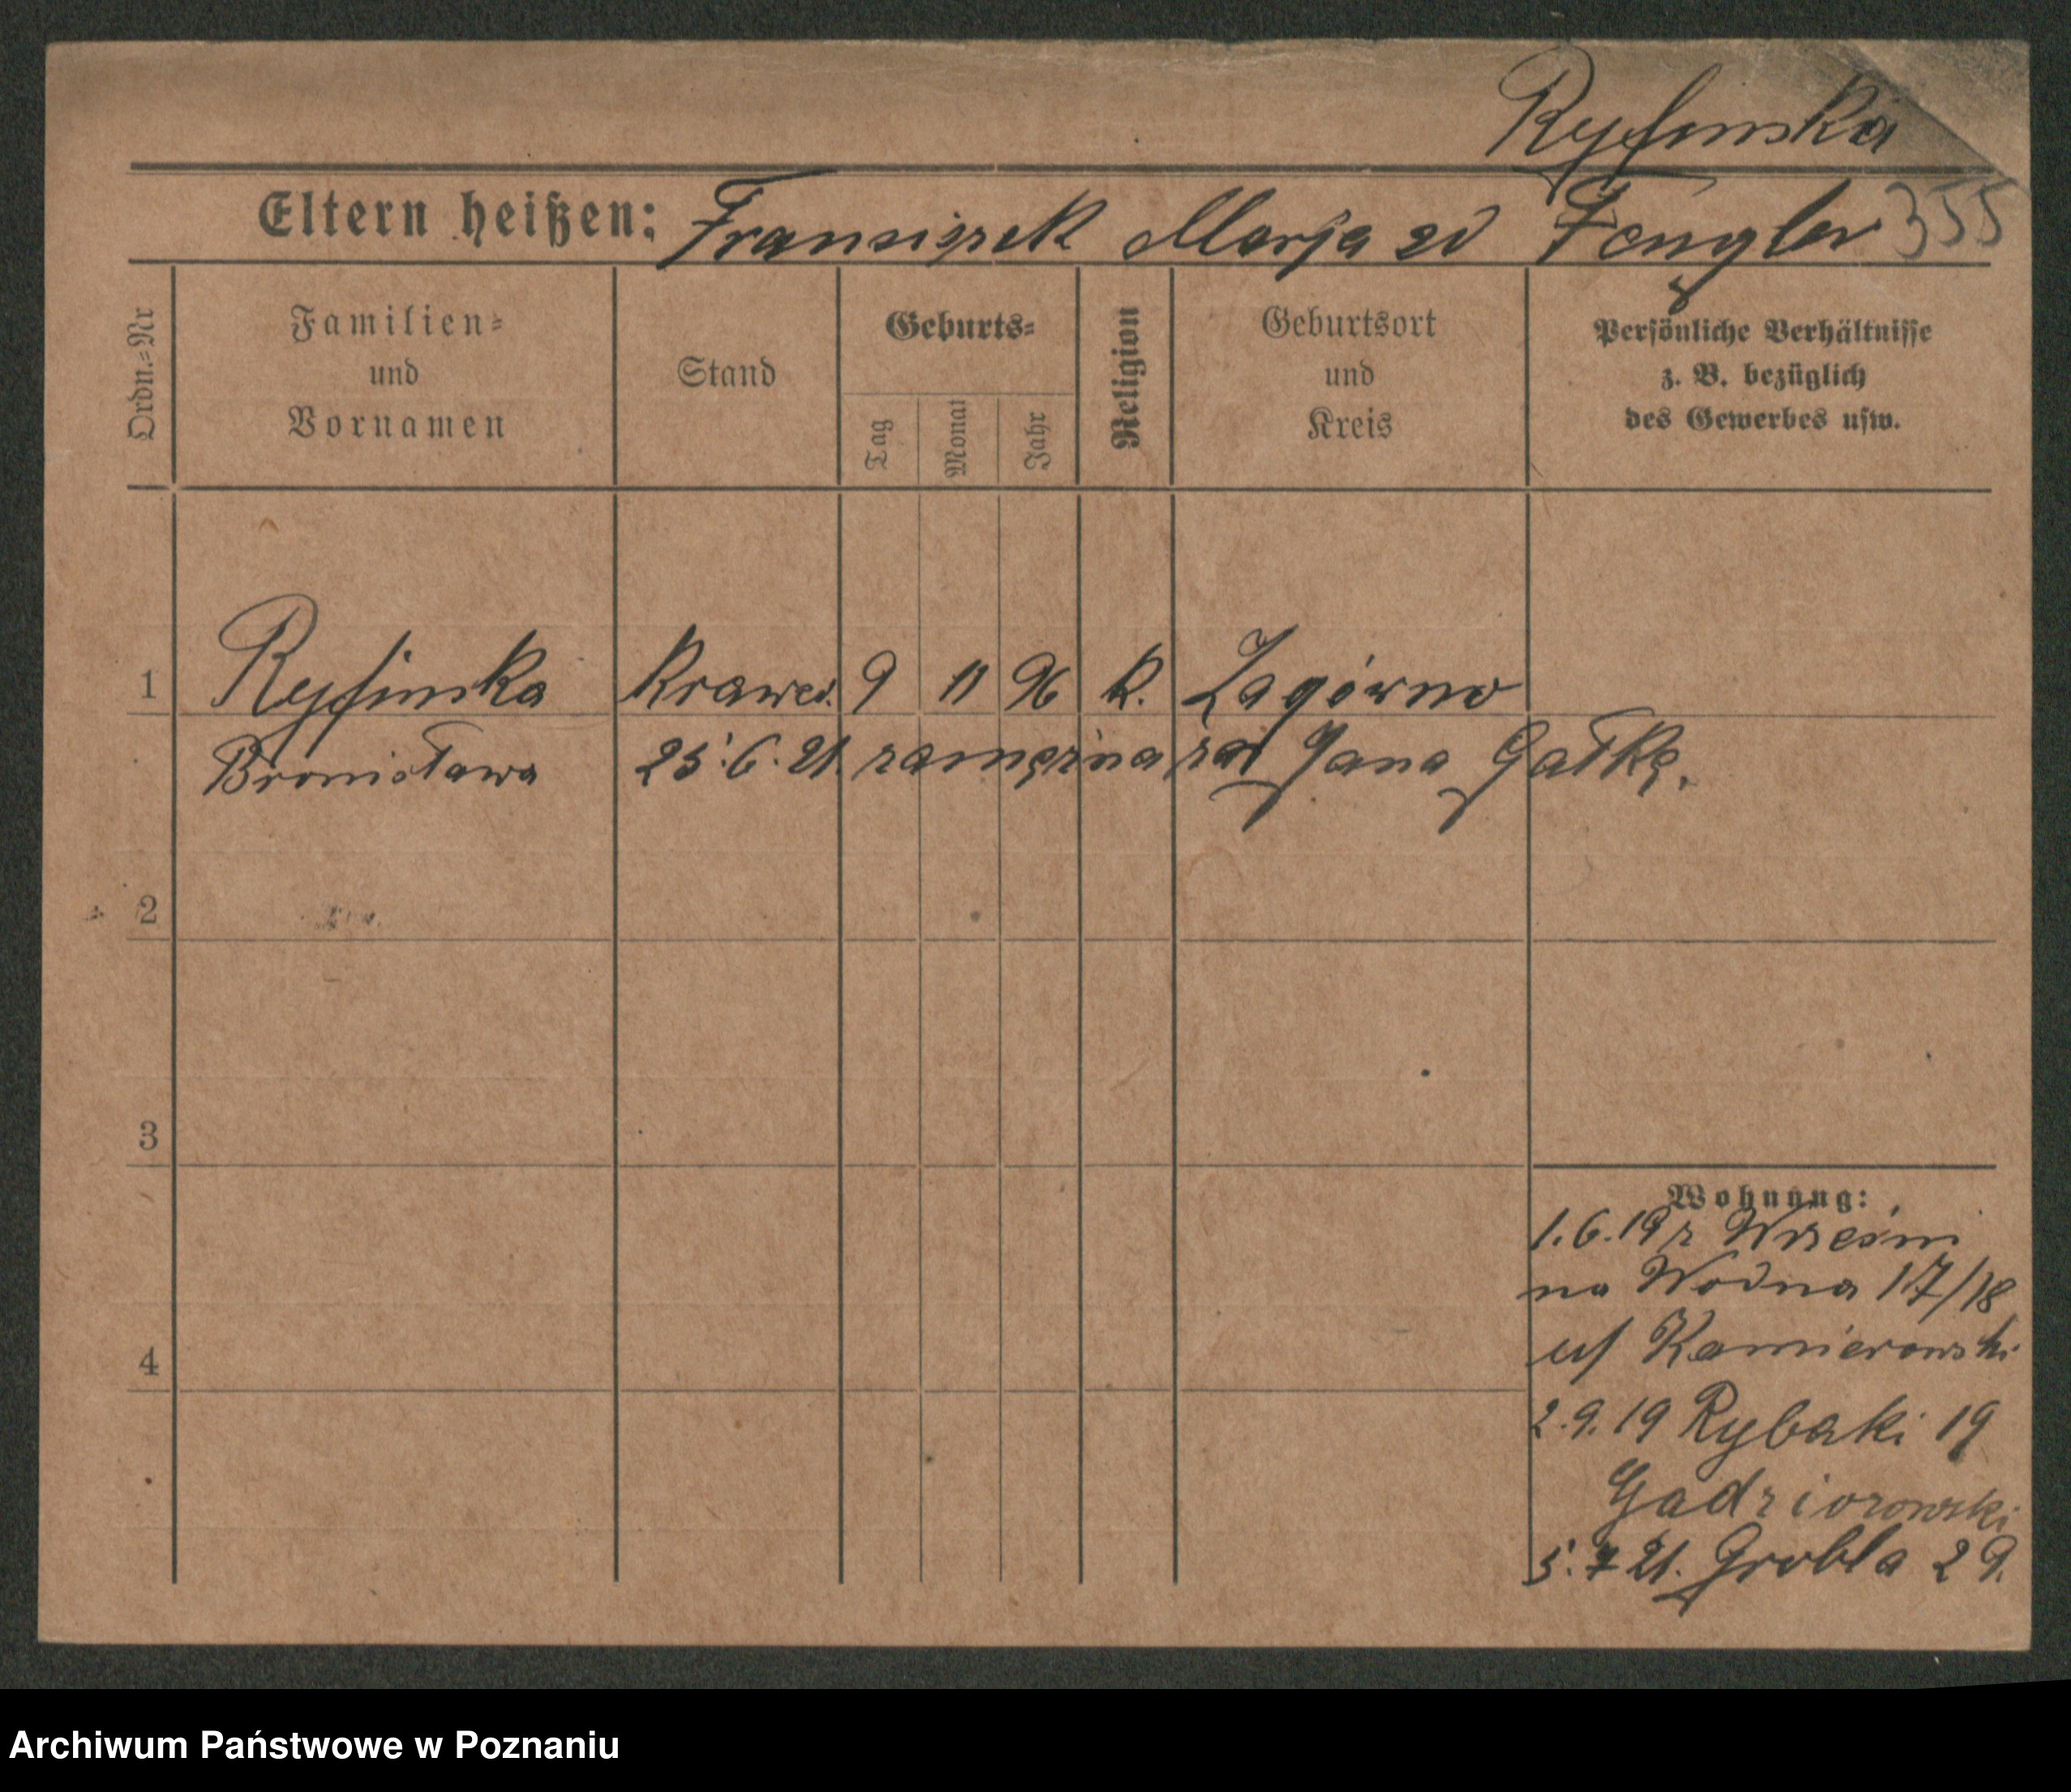 Ryfinska
Eltern heißen: Fransiszek Marja zd Fengler 355
Ordn.=Nr
Familien=
und
Vornamen
Stand
Geburts=
Tag
Monat
Jahr
Religion
Geburtsort
und
Kreis
Persönliche Verhältnisse
z. B. bezüglich
des Gewerbes usw.
1 Ryfinska Krawco. 9 11 96 k. Zagórno
Bronisława 25.6.21. zamężna za Jana Gałkę.
2
3
4
Wohnung:
1.6.19 z Wrześni
na Wodna 17/18
u/
2.9.19 Rybaki 19
Gądziorowski
5.7 21. Grobla 29.
Archiwum Państwowe w Poznaniu